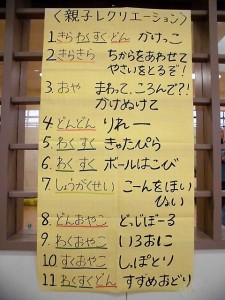 〈親子レクリエーション〉
1.きらわくすくどん かけっこ
2.きらきら ちからをあわせて
やさいをとるぞ!
3.おや まわって、ころんで?!
かけぬけて
4.どんどん りれー
5.わくすく きゃたぴら
6.わくすく ボールはこび
7.しょうがくせい こーんをほい
ひょい
8.どんおやこ どっじぼーる
9.わくおやこ いろおに
10.すくおやこ しっぽとり
11.わくすくどん すずめおどり